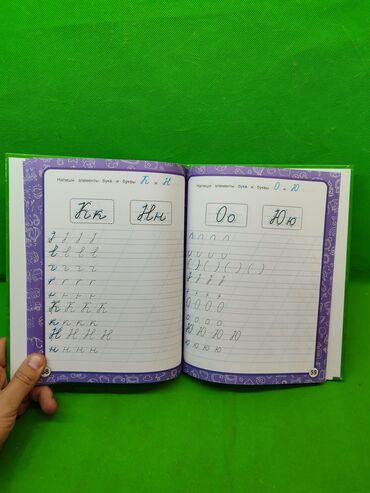 Напиши элементы букв и буквы К и Н
Кк Нн
К К К К
к к к к
Н Н Н Н
н н н н
58
Напиши элементы букв и буквы О и Ю
Оо Юю
О О О О
о о о о
Ю Ю Ю Ю
ю ю ю ю
59